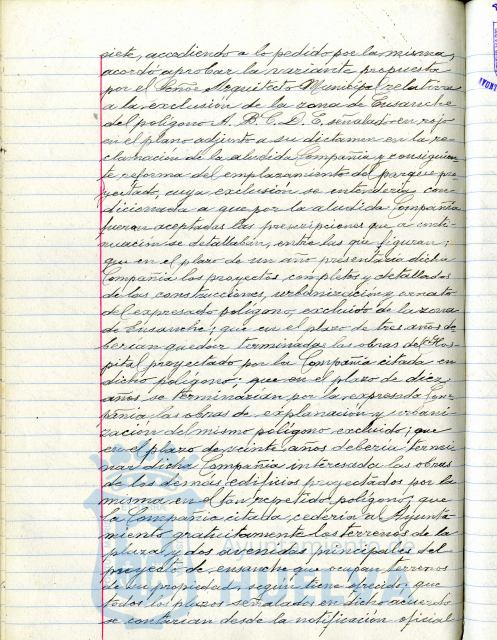 siete, accediendo a lo pedido por la misma,
acordó aprobar la variante propuesta
por el Señor Arquitecto Municipal relativa
a la exclusión de la zona de Ensanche
del polígono A. B. C. D. E. señalado en rojo
en el plano adjunto a su dictamen en la re-
clamación de la aludida Compañía y consiguien-
te reforma del emplazamiento del parque pro-
yectado, cuya exclusión se entendería con-
dicionada a que por la aludida Compañía
fueran aceptadas las prescripciones que a conti-
nuación se detallaban, entre las que figuran;
que en el plazo de un año presentaría dicha
Compañía los proyectos, completos y detallados
de las construcciones, urbanización y ornato
del expresado polígono, excluido de la zona
de Ensanche; que en el plazo de tres años de-
berían quedar terminadas las obras del Hos-
pital proyectado por la Compañía citada en
dicho polígono; que en el plazo de diez
años se terminarían por la expresada Com-
pañía las obras de explanación y urbani-
zación del mismo polígono excluido; que
en el plazo de veinte años debería termi-
nar dicha Compañía interesada las obras
de los demás edificios proyectados por la
misma en el tan repetido polígono; que
la Compañía citada, cedería al Ayunta-
miento gratuitamente los terrenos de la
plaza y dos avenidas principales del
proyecto de ensanche que ocupan terrenos
de su propiedad, según tiene ofrecido; que
todos los plazos señalados en dicho acuerdo
se contarían desde la notificación oficial
Ayuntamiento de
HUELVA